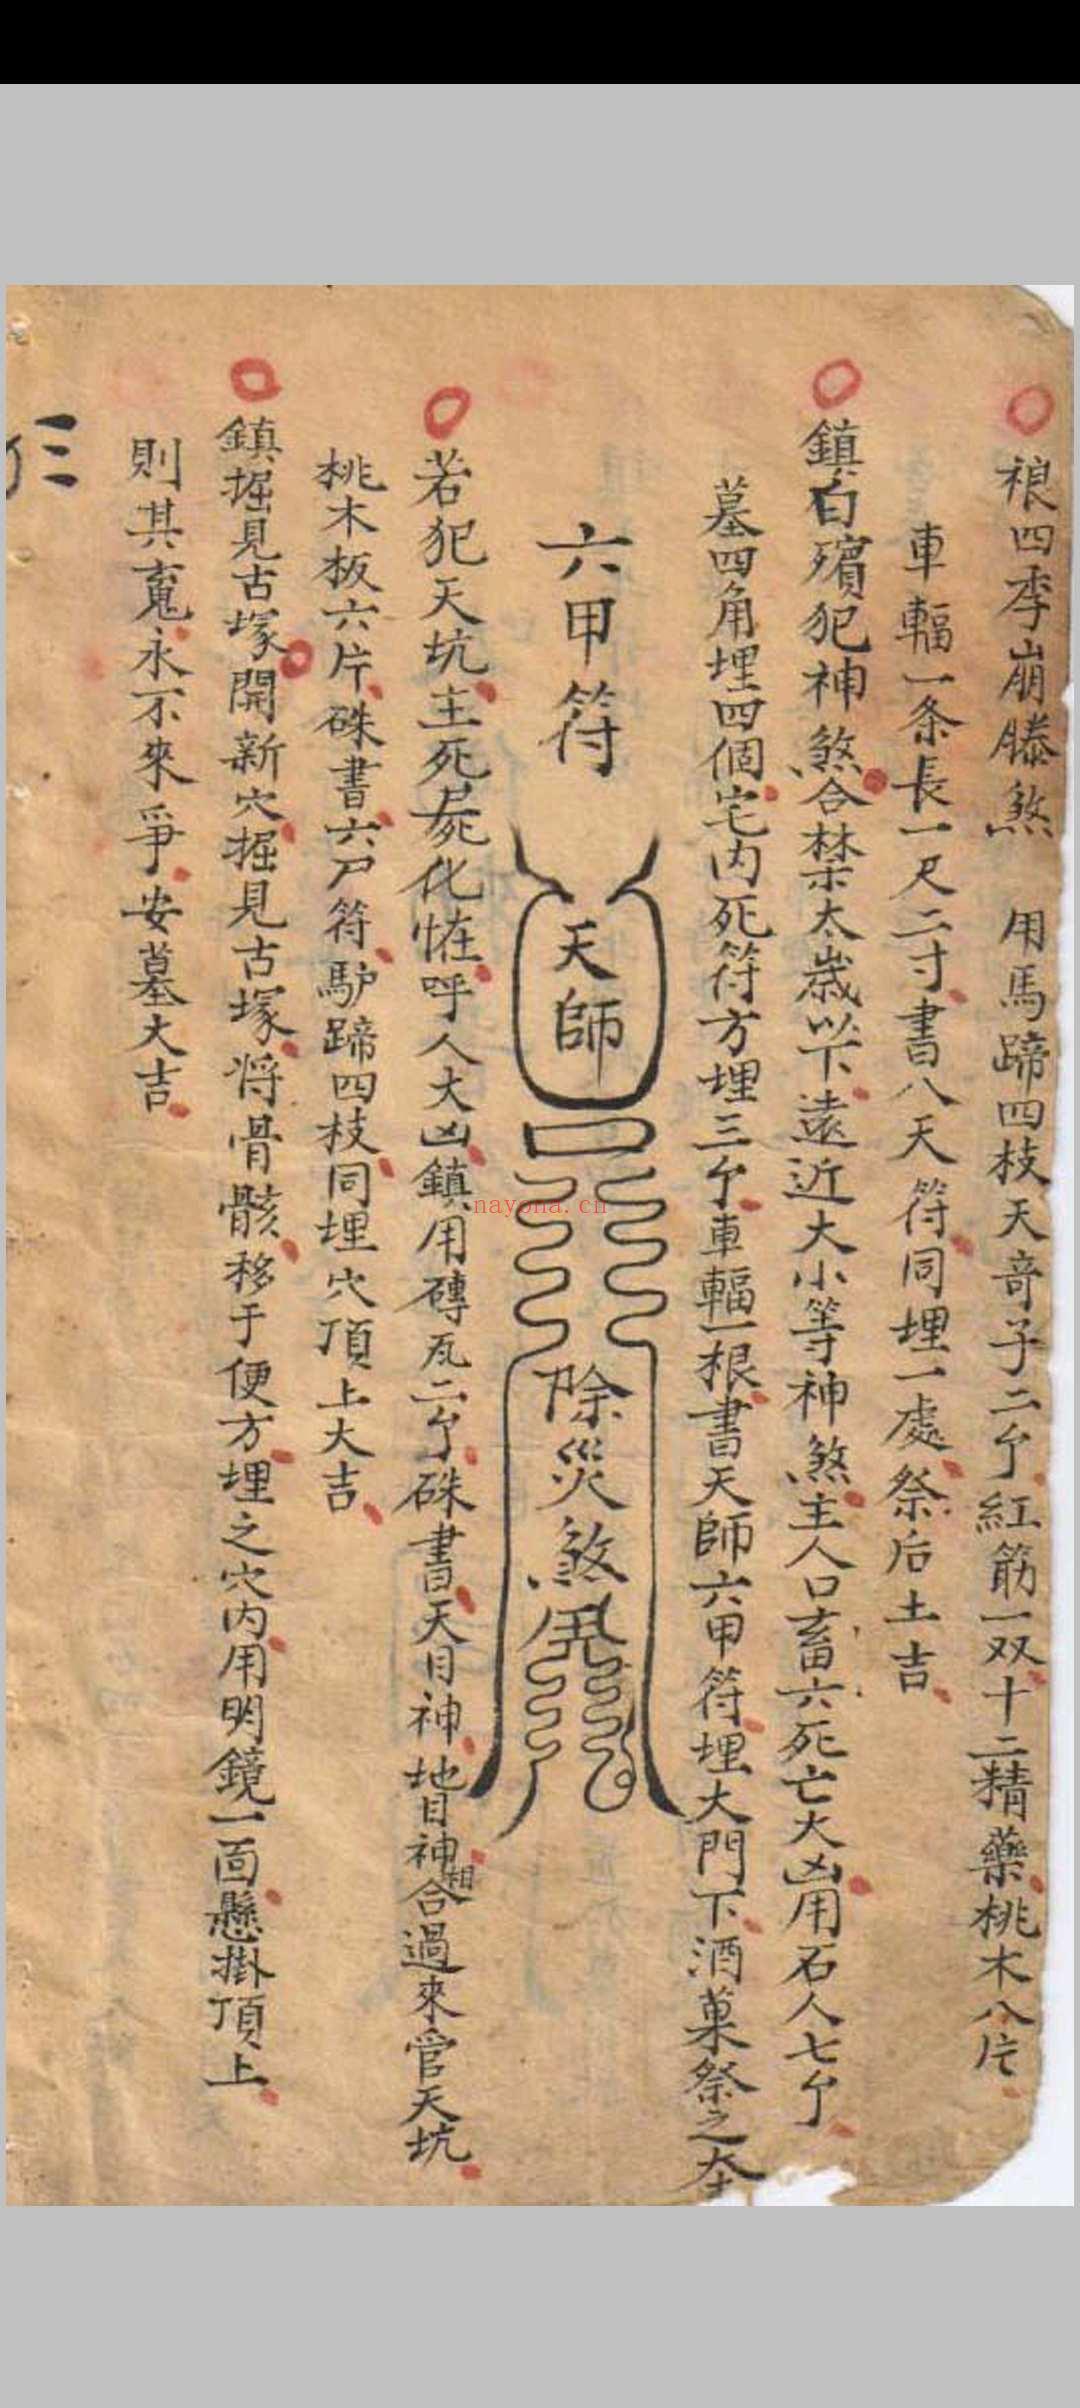 禓四季崩騰煞 用馬蹄四枝天奇子二个紅筋一双十二精藥桃木八片
車輻一条長一尺二寸書八天符同埋一處祭后土吉
鎮白殯犯神煞合禁太歲以下遠近大小等神煞主人口畜六死亡大凶用石人七个
墓四角埋四個宅内死符方埋三个車輻一根書天師六甲符埋大門下酒菓祭之大
六甲符
天師
除災煞
若犯天坑主死屍化恠呼人大凶鎮用磚瓦二个硃書天目神地目神相合過來官天坑
桃木板六片硃書六尸符馿蹄四枝同埋穴頂上大吉
鎮掘見古塚開新穴掘見古塚将骨骸移于便方埋之穴内用明鏡一面懸掛頂上
則其䰟永不來爭安墓大吉
nayona.cn